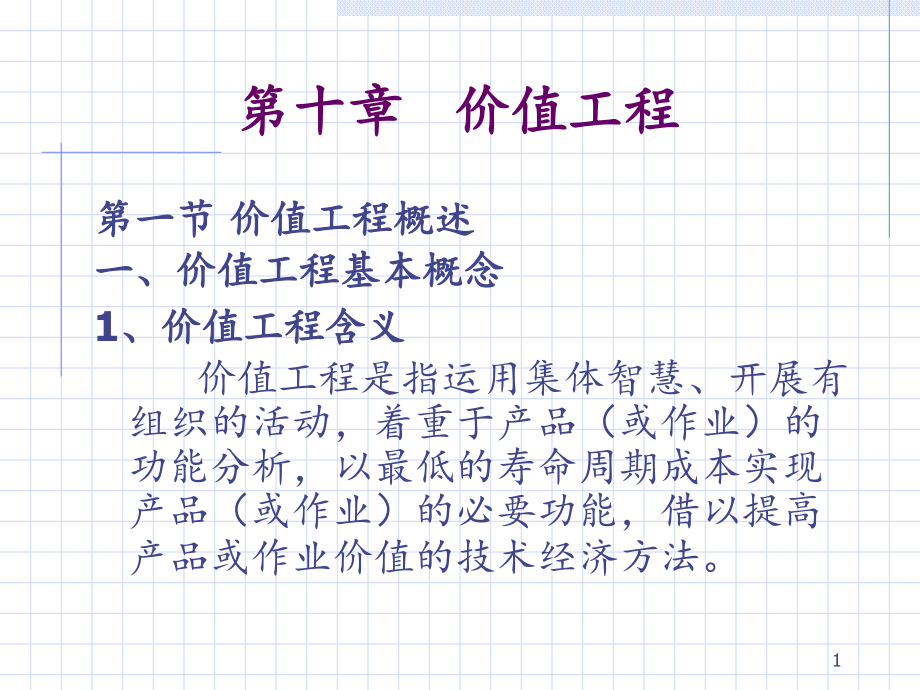 第十章　价值工程
第一节 价值工程概述
一、价值工程基本概念
1、价值工程含义
价值工程是指运用集体智慧、开展有
组织的活动，着重于产品（或作业）的
功能分析，以最低的寿命周期成本实现
产品（或作业）的必要功能，借以提高
产品或作业价值的技术经济方法。
1